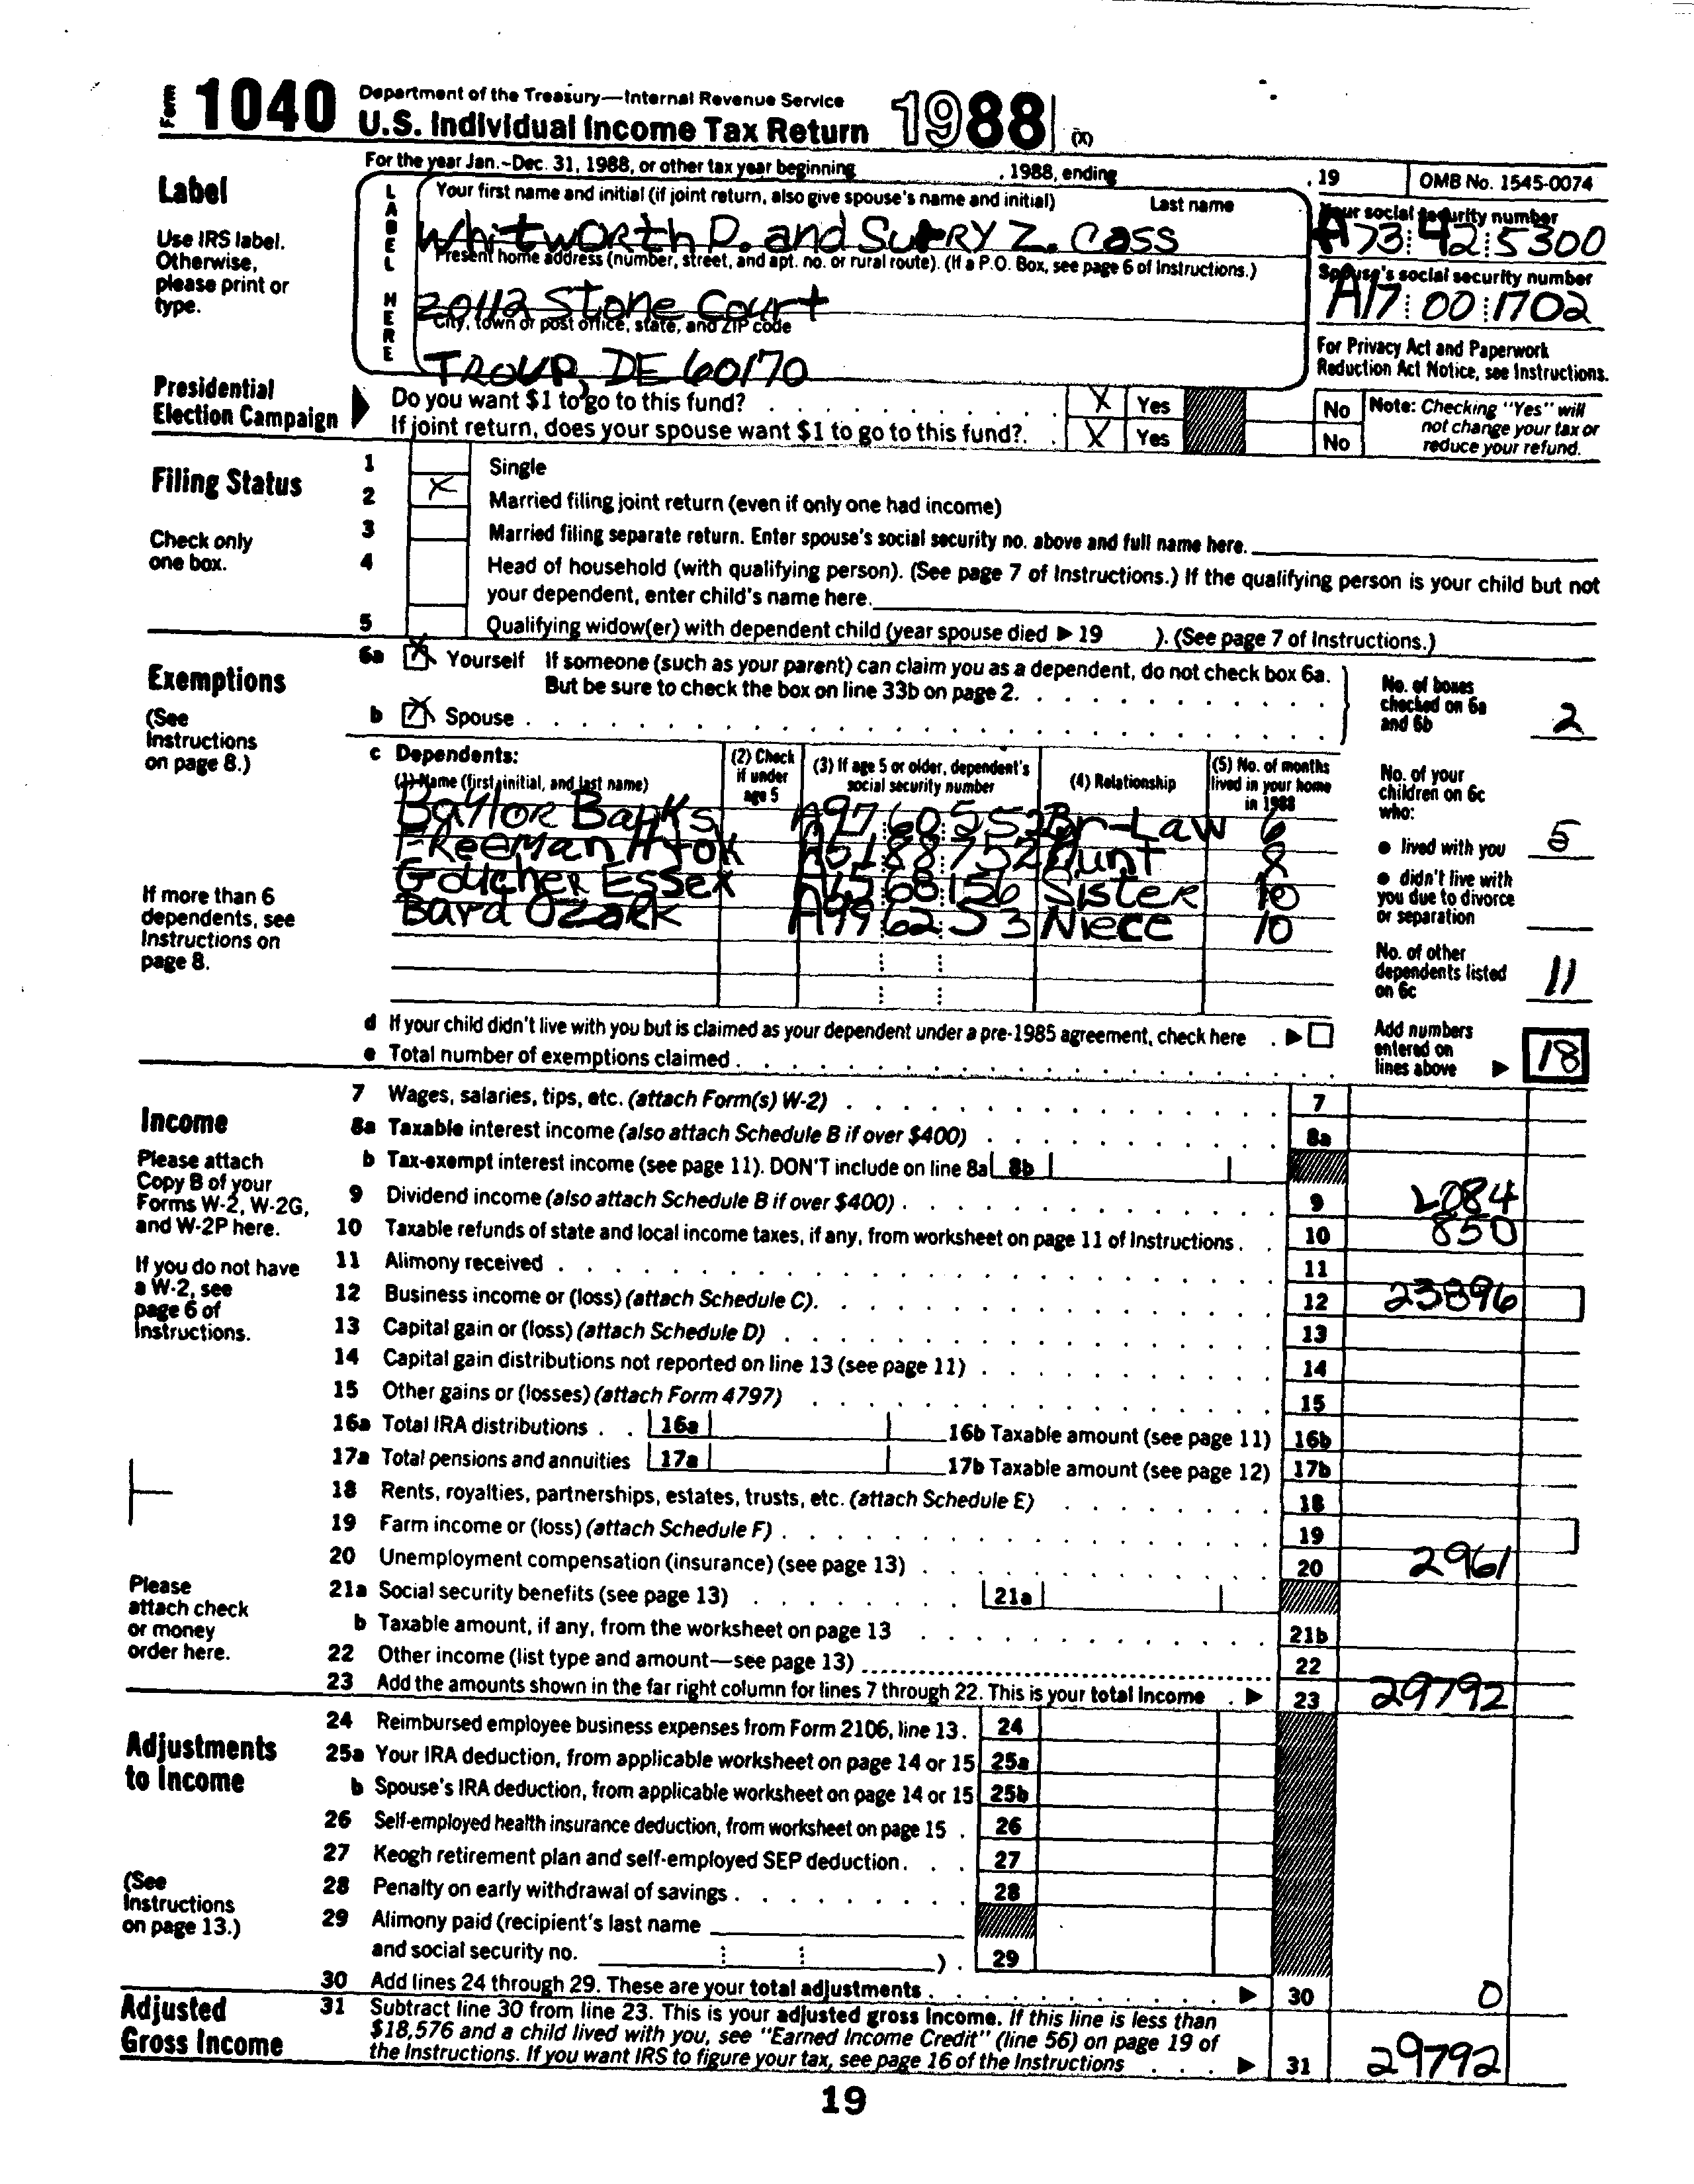 Form 1040 Department of the Treasury—Internal Revenue Service
U.S. Individual Income Tax Return 1988 (X)
For the year Jan.–Dec. 31, 1988, or other tax year beginning , 1988, ending , 19 OMB No. 1545-0074
Label
Use IRS label. Otherwise, please print or type.
LABEL HERE
Your first name and initial (if joint return, also give spouse's name and initial) Last name
Whitworth D. and Z. Cass
Your social security number
A73 42 5300
Present home address (number, street, and apt. no. or rural route). (If a P.O. Box, see page 6 of Instructions.)
20112 Stone Court
Spouse's social security number
A17 00 1702
City, town or post office, state, and ZIP code
TROUP, DE 60170
For Privacy Act and Paperwork Reduction Act Notice, see Instructions.
Presidential Election Campaign
Do you want $1 to go to this fund? X Yes No
If joint return, does your spouse want $1 to go to this fund? X Yes No
Note: Checking "Yes" will not change your tax or reduce your refund.
Filing Status
Check only one box.
1 Single
2 X Married filing joint return (even if only one had income)
3 Married filing separate return. Enter spouse's social security no. above and full name here.
4 Head of household (with qualifying person). (See page 7 of Instructions.) If the qualifying person is your child but not
your dependent, enter child's name here.
5 Qualifying widow(er) with dependent child (year spouse died ▶ 19 ). (See page 7 of Instructions.)
Exemptions
(See Instructions on page 8.)
6a X Yourself If someone (such as your parent) can claim you as a dependent, do not check box 6a.
But be sure to check the box on line 33b on page 2.
b X Spouse
No. of boxes checked on 6a and 6b 2
c Dependents:
(1) Name (first, initial, and last name) (2) Check if under age 5 (3) If age 5 or older, dependent's social security number (4) Relationship (5) No. of months lived in your home in 1988
Baylor Banks A97 60 552 Br-Law 6
Freeman A51 88 752 Aunt 8
Goucher Essex A15 68 156 Sister 10
Bard Ozark A99 62 53 Niece 10
If more than 6 dependents, see Instructions on page 8.
No. of your children on 6c who:
• lived with you 5
• didn't live with you due to divorce or separation
No. of other dependents listed on 6c 11
d If your child didn't live with you but is claimed as your dependent under a pre-1985 agreement, check here ▶
e Total number of exemptions claimed
Add numbers entered on lines above ▶ 18
Income
Please attach Copy B of your Forms W-2, W-2G, and W-2P here.
If you do not have a W-2, see page 6 of Instructions.
Please attach check or money order here.
7 Wages, salaries, tips, etc. (attach Form(s) W-2) 7
8a Taxable interest income (also attach Schedule B if over $400) 8a
b Tax-exempt interest income (see page 11). DON'T include on line 8a 8b
9 Dividend income (also attach Schedule B if over $400) 9 2084
10 Taxable refunds of state and local income taxes, if any, from worksheet on page 11 of Instructions 10 850
11 Alimony received 11
12 Business income or (loss) (attach Schedule C) 12 23896
13 Capital gain or (loss) (attach Schedule D) 13
14 Capital gain distributions not reported on line 13 (see page 11) 14
15 Other gains or (losses) (attach Form 4797) 15
16a Total IRA distributions 16a 16b Taxable amount (see page 11) 16b
17a Total pensions and annuities 17a 17b Taxable amount (see page 12) 17b
18 Rents, royalties, partnerships, estates, trusts, etc. (attach Schedule E) 18
19 Farm income or (loss) (attach Schedule F) 19
20 Unemployment compensation (insurance) (see page 13) 20 2961
21a Social security benefits (see page 13) 21a
b Taxable amount, if any, from the worksheet on page 13 21b
22 Other income (list type and amount—see page 13) 22
23 Add the amounts shown in the far right column for lines 7 through 22. This is your total income ▶ 23 29792
Adjustments to Income
(See Instructions on page 13.)
24 Reimbursed employee business expenses from Form 2106, line 13. 24
25a Your IRA deduction, from applicable worksheet on page 14 or 15 25a
b Spouse's IRA deduction, from applicable worksheet on page 14 or 15 25b
26 Self-employed health insurance deduction, from worksheet on page 15 26
27 Keogh retirement plan and self-employed SEP deduction 27
28 Penalty on early withdrawal of savings 28
29 Alimony paid (recipient's last name
and social security no. ) 29
30 Add lines 24 through 29. These are your total adjustments ▶ 30 0
Adjusted Gross Income
31 Subtract line 30 from line 23. This is your adjusted gross income. If this line is less than
$18,576 and a child lived with you, see "Earned Income Credit" (line 56) on page 19 of
the Instructions. If you want IRS to figure your tax, see page 16 of the Instructions ▶ 31 29792
19